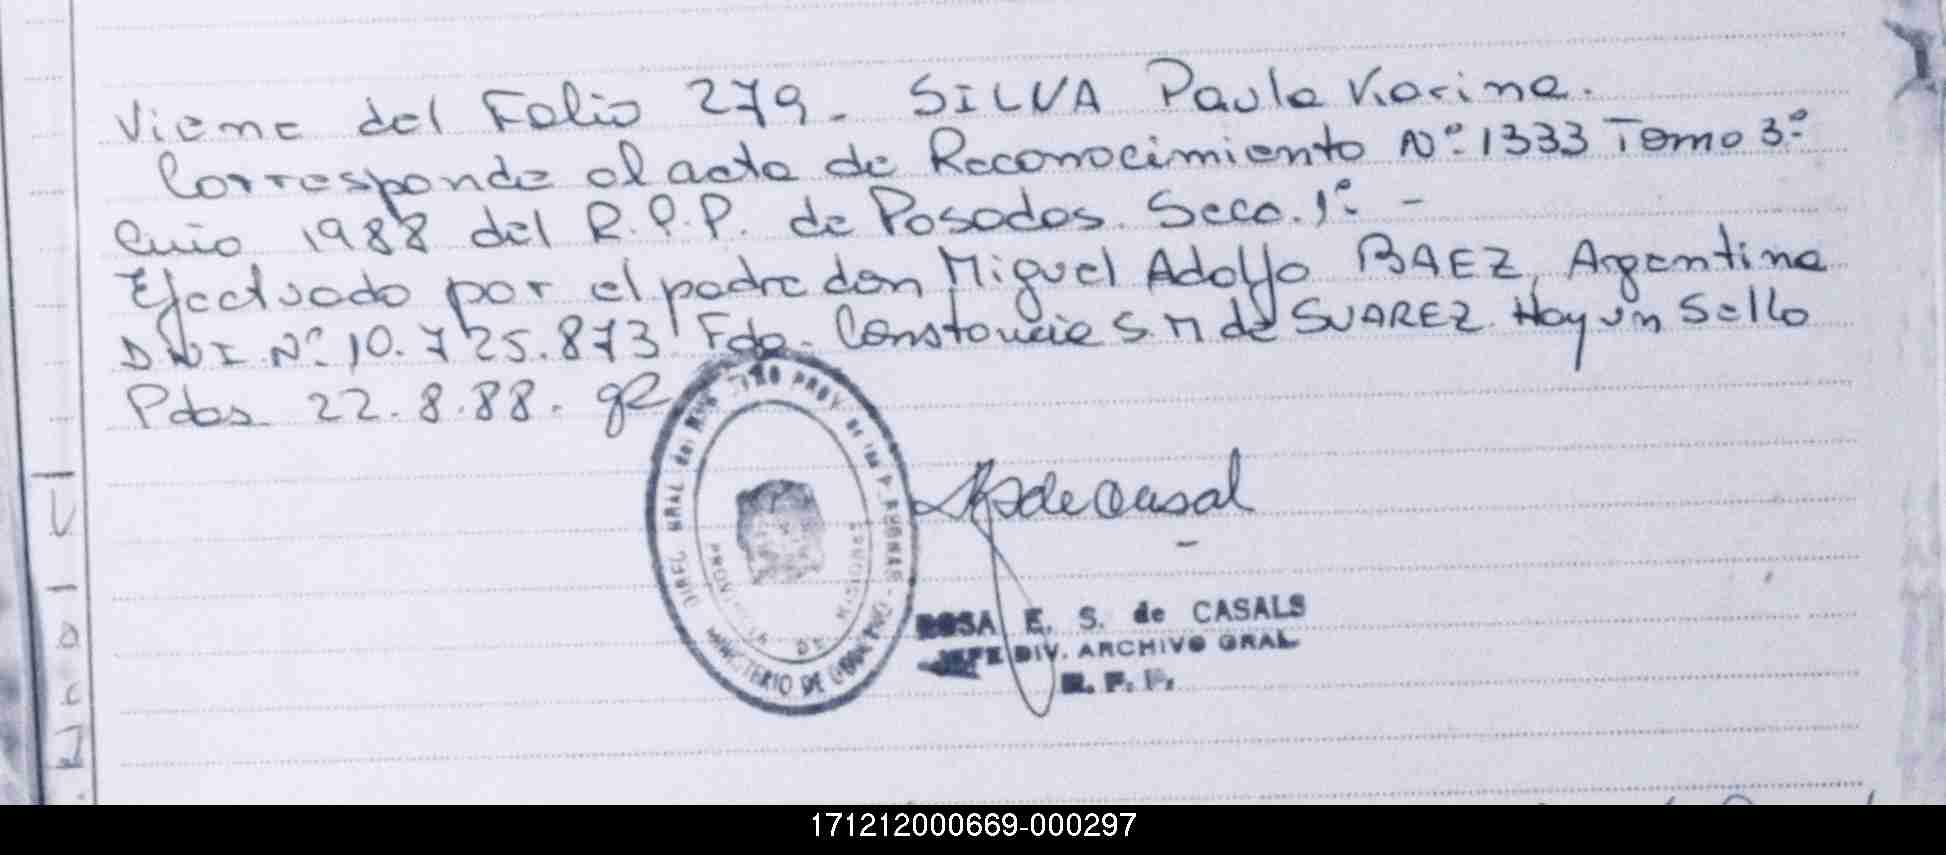 Viene del Folio 279. SILVA Paula Karina.
Corresponde al acta de Reconocimiento Nº 1333 Tomo 3º
año 1988 del R.P.P. de Posadas. Secc. 1º. -
Efectuado por el padre don Miguel Adolfo BAEZ, Argentina
DNI. Nº 10.725.873 Fdo. Constancia S. M de SUAREZ. Hay un Sello
Pdas 22.8.88.
PROVINCIA DE MISIONES
MINISTERIO DE
ROSA E. S. de CASALS
JEFE DIV. ARCHIVO GRAL
R. P. P.
171212000669-000297